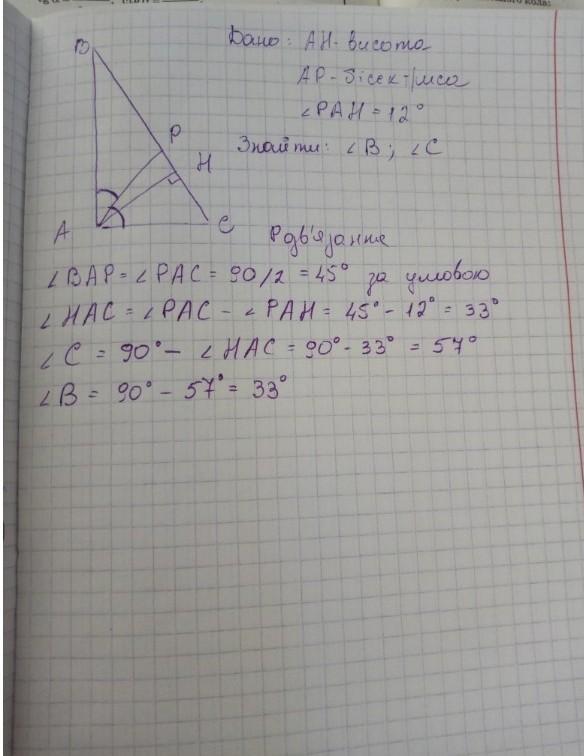 Дано: AH - висота
AP - бісектриса
∠PAH = 12°
Знайти: ∠B; ∠C
B
P
H
A
C
Розв'язання
∠BAP = ∠PAC = 90/2 = 45° за умовою
∠HAC = ∠PAC - ∠PAH = 45° - 12° = 33°
∠C = 90° - ∠HAC = 90° - 33° = 57°
∠B = 90° - 57° = 33°